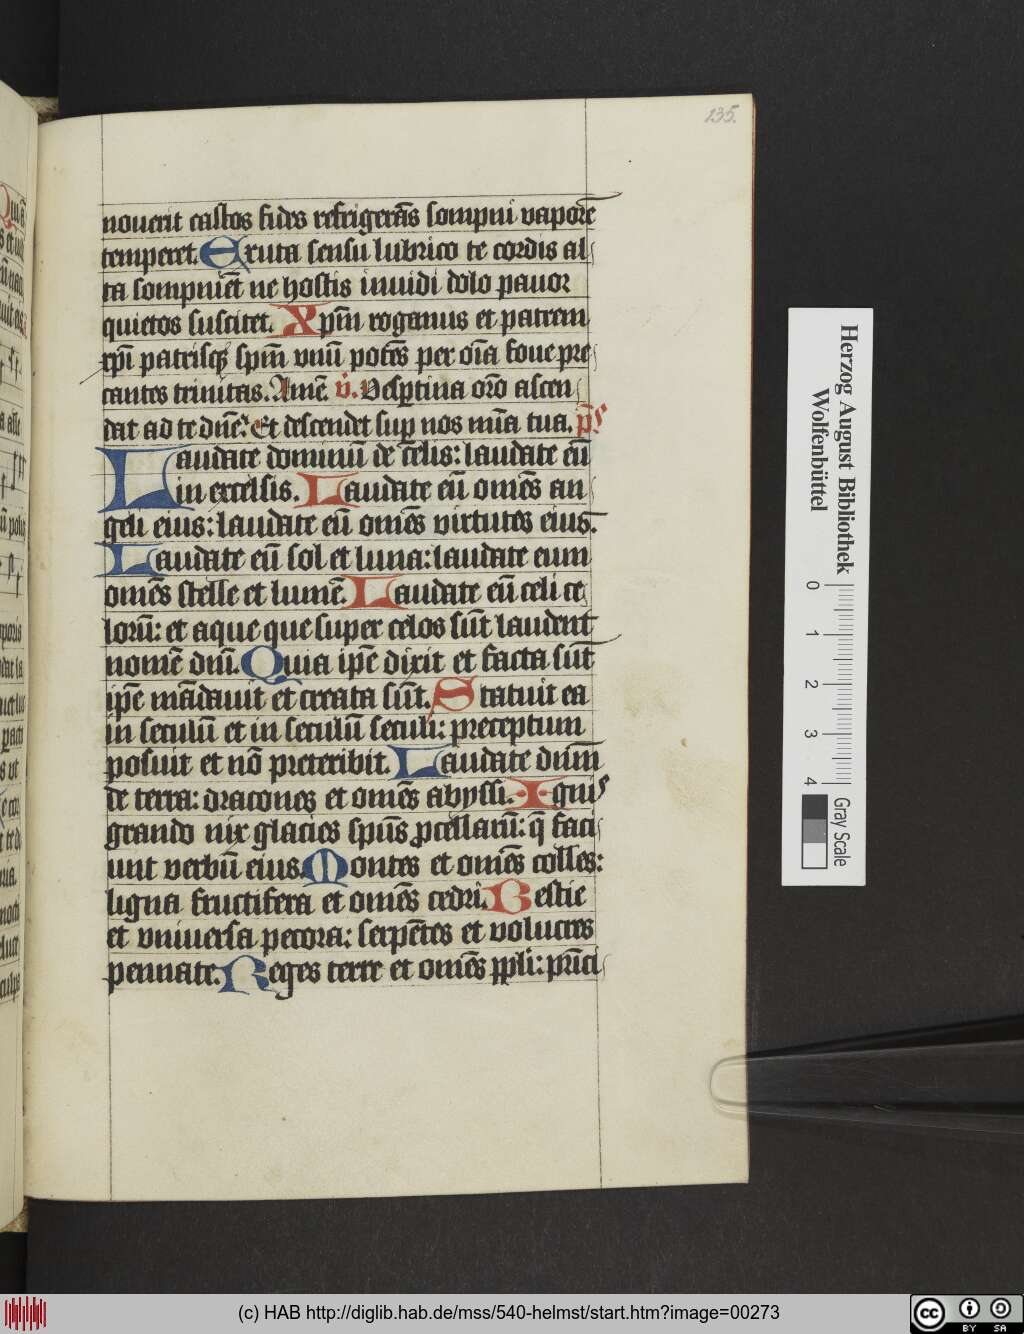 135.
nouerit castos fides refrigerãs sompni vaporē
temperet. Exuta sensu lubrico te cordis al
ta sompniēt ne hostis inuidi dolo pauor
quietos suscitet. Xp̄m rogamus et patrem
xp̄i patrisqꝫ sp̄m vnū potēs per oīa foue pre
cantes trinitas. Amē. v̄. Vesꝑtina orō ascen
dat ad te dn̄e. Et descendet suꝑ nos mīa tua. p̄s
Laudate dominū de celis: laudate eū
in excelsis. Laudate eū omēs an
geli eius: laudate eū omēs virtutes eius.
Laudate eū sol et luna: laudate eum
omēs stelle et lumē. Laudate eū celi ce
lorū: et aque que super celos sūt laudent
nomē dn̄i. Quia ip̄e dixit et facta sūt
ip̄e mādauit et creata sūt. Statuit ea
in seculū et in seculū seculi: preceptum
posuit et nō preteribit. Laudate dn̄m
de terra: dracones et omēs abyssi. Ignis
grando nix glacies sp̄us ꝓcellarū: q̄ faci
unt verbū eius. Montes et omēs colles:
ligna fructifera et omēs cedri. Bestie
et vniuersa pecora: serpētes et volucres
pennate. Reges terre et omēs pp̄li: prīci
Herzog August Bibliothek
Wolfenbüttel
0 1 2 3 4
Gray Scale
(c) HAB http://diglib.hab.de/mss/540-helmst/start.htm?image=00273
cc BY SA